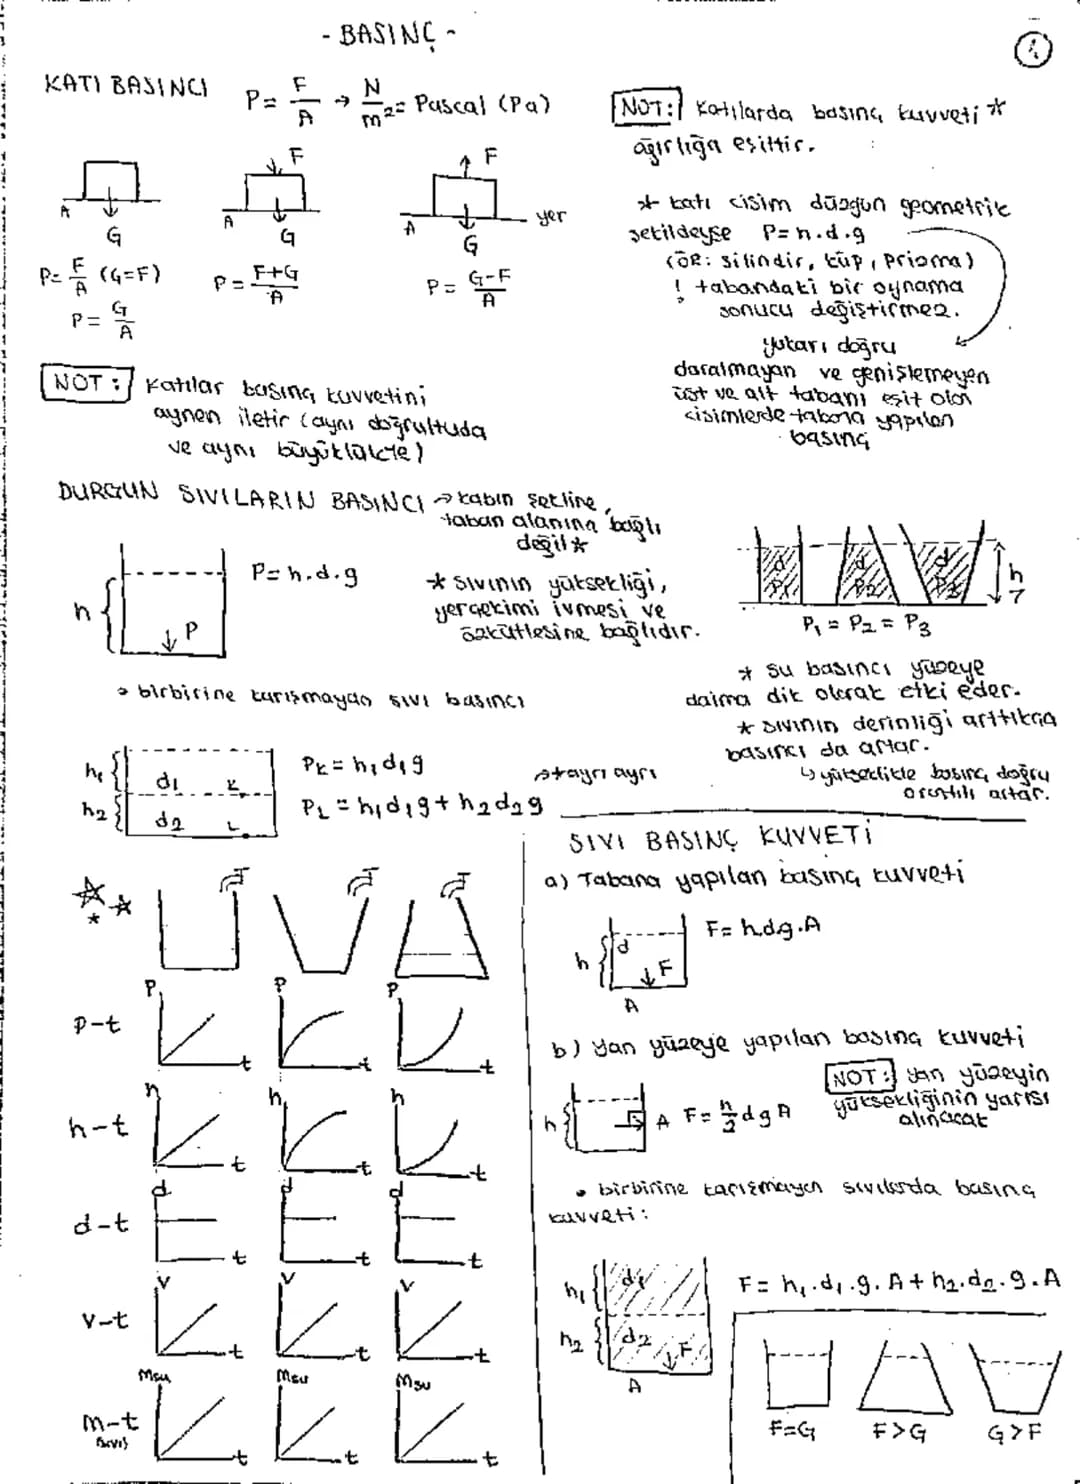 - BASINÇ -
1
KATI BASINCI
P= F/A → N/m² = Pascal (Pa)
F
F
A
G
A
G
A
G
yer
P= F/A (G=F)
P= G/A
P= F+G/A
P= G-F/A
NOT: Katılarda basınç kuvveti *
ağırlığa eşittir.
* katı cisim düzgün geometrik
şekildeyse P=h.d.g
(ÖR: silindir, küp, prizma)
! tabandaki bir oynama
sonucu değiştirmez.
yukarı doğru
daralmayan ve genişlemeyen
üst ve alt tabanı eşit olan
cisimlerde tabana yapılan
basınç
NOT: Katılar basınç kuvvetini
aynen iletir (aynı doğrultuda
ve aynı büyüklükte)
DURGUN SIVILARIN BASINCI → kabın şekline,
taban alanına bağlı
değil *
h
P
P=h.d.g
* sıvının yüksekliği,
yerçekimi ivmesi ve
özkütlesine bağlıdır.
d d d
P1 P2 P3
h
P1 = P2 = P3
* su basıncı yüzeye
daima dik olarak etki eder.
* sıvının derinliği arttıkça
basıncı da artar.
↳ yükseklikle basınç doğru
orantılı artar.
→ birbirine karışmayan sıvı basıncı
h1 d1 K
h2 d2 L
PK = h1d1g
PL = h1d1g + h2d2g
→ ayrı ayrı
P P P
p-t
t t t
h h h
h-t
t t t
d d d
d-t
t t t
V V V
v-t
t t t
Msu Msu Msu
m-t
(sıvı)
t t t
SIVI BASINÇ KUVVETİ
a) Tabana yapılan basınç kuvveti
h d F
A
F= h.dg.A
b) Yan yüzeye yapılan basınç kuvveti
h A F= h/2 dgA
NOT: Yan yüzeyin
yüksekliğinin yarısı
alınacak
• birbirine karışmayan sıvılarda basınç
kuvveti:
h1 d1
h2 d2 F
A
F= h1.d1.g.A + h2.d2.g.A
F=G F>G G>F